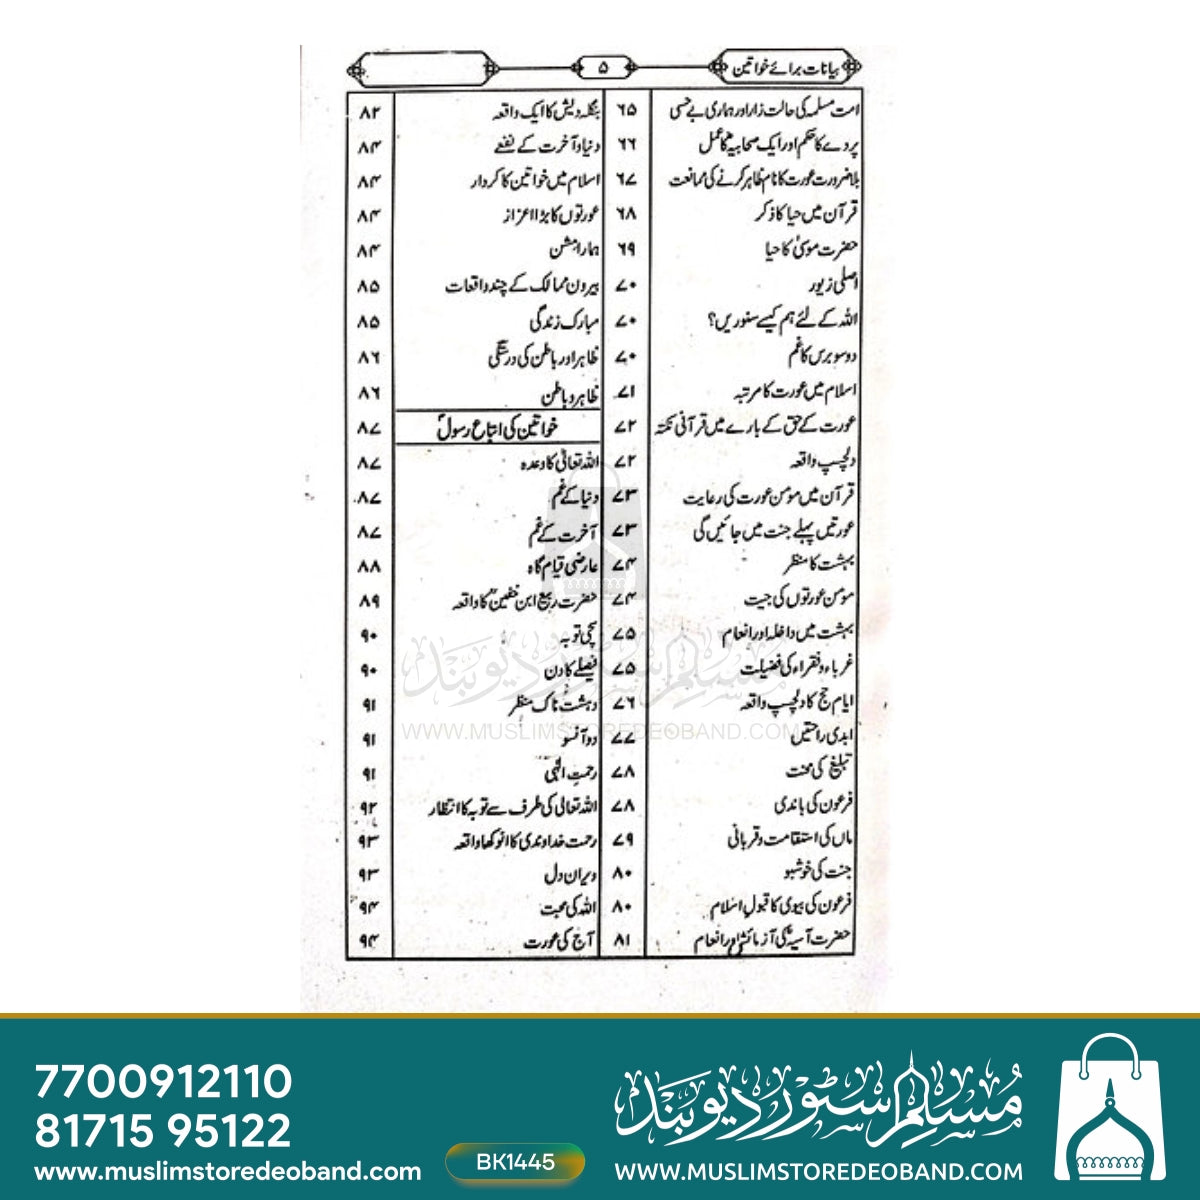 بیانات برائے خواتین
۵
امت مسلمہ کی حالت زار اور ہماری بے حسی ۶۵
پردے کا حکم اور ایک صحابیہؓ کا عمل ۶۶
بلا ضرورت عورت کا نام ظاہر کرنے کی ممانعت ۶۷
قرآن میں حیا کا ذکر ۶۸
حضرت موسیٰؑ کا حیا ۶۹
اصلی زیور ۷۰
اللہ کے لئے ہم کیسے سنوریں؟ ۷۰
دو سو برس کا غم ۷۰
اسلام میں عورت کا مرتبہ ۷۱
عورت کے حق کے بارے میں قرآنی نکتہ ۷۲
دلچسپ واقعہ ۷۲
قرآن میں مومن عورت کی رعایت ۷۳
عورتیں پہلے جنت میں جائیں گی ۷۳
بہشت کا منظر ۷۴
مومن عورتوں کی جیت ۷۴
بہشت میں داخلہ اور انعام ۷۵
غرباء و فقراء کی فضیلت ۷۵
ایام حج کا دلچسپ واقعہ ۷۶
ابدی راحتیں ۷۷
تبلیغ کی محنت ۷۸
فرعون کی باندی ۷۸
ماں کی استقامت و قربانی ۷۹
جنت کی خوشبو ۸۰
فرعون کی بیوی کا قبول اسلام ۸۰
حضرت آسیہؓ کی آزمائش اور انعام ۸۱
بنگلہ دیش کا ایک واقعہ ۸۲
دنیا و آخرت کے نقشے ۸۴
اسلام میں خواتین کا کردار ۸۴
عورتوں کا بڑا اعزاز ۸۴
ہمارا مشن ۸۴
بیرون ممالک کے چند واقعات ۸۵
مبارک زندگی ۸۵
ظاہر اور باطن کی درستگی ۸۶
ظاہر و باطن ۸۶
خواتین کی اتباع رسولؐ ۸۷
اللہ تعالیٰ کا وعدہ ۸۷
دنیا کے غم ۸۷
آخرت کے غم ۸۷
عارضی قیام گاہ ۸۸
حضرت ربیع ابن خثیمؒ کا واقعہ ۸۹
سچی توبہ ۹۰
فیصلے کا دن ۹۰
دہشت ناک منظر ۹۱
دو آنسو ۹۱
رحمت الٰہی ۹۱
اللہ تعالیٰ کی طرف سے توبہ کا انتظار ۹۲
رحمت خداوندی کا انوکھا واقعہ ۹۳
ویران دل ۹۳
اللہ کی محبت ۹۴
آج کی عورت ۹۴
مسلم سٹور دیوبند
WWW.MUSLIMSTOREDEOBAND.COM
7700912110
81715 95122
www.muslimstoredeoband.com
BK1445
مسلم سٹور دیوبند
WWW.MUSLIMSTOREDEOBAND.COM